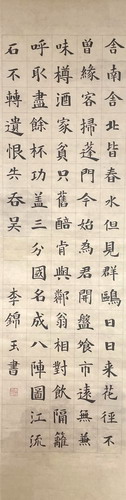 舍南舍北皆春水但見群鷗日日來花徑不
曾緣客掃蓬門今始為君開盤飧市遠無兼
味樽酒家貧只舊醅肯與鄰翁相對飲隔籬
呼取盡餘杯功蓋三分國名成八陣圖江流
石不轉遺恨失吞吳
李錦玉書